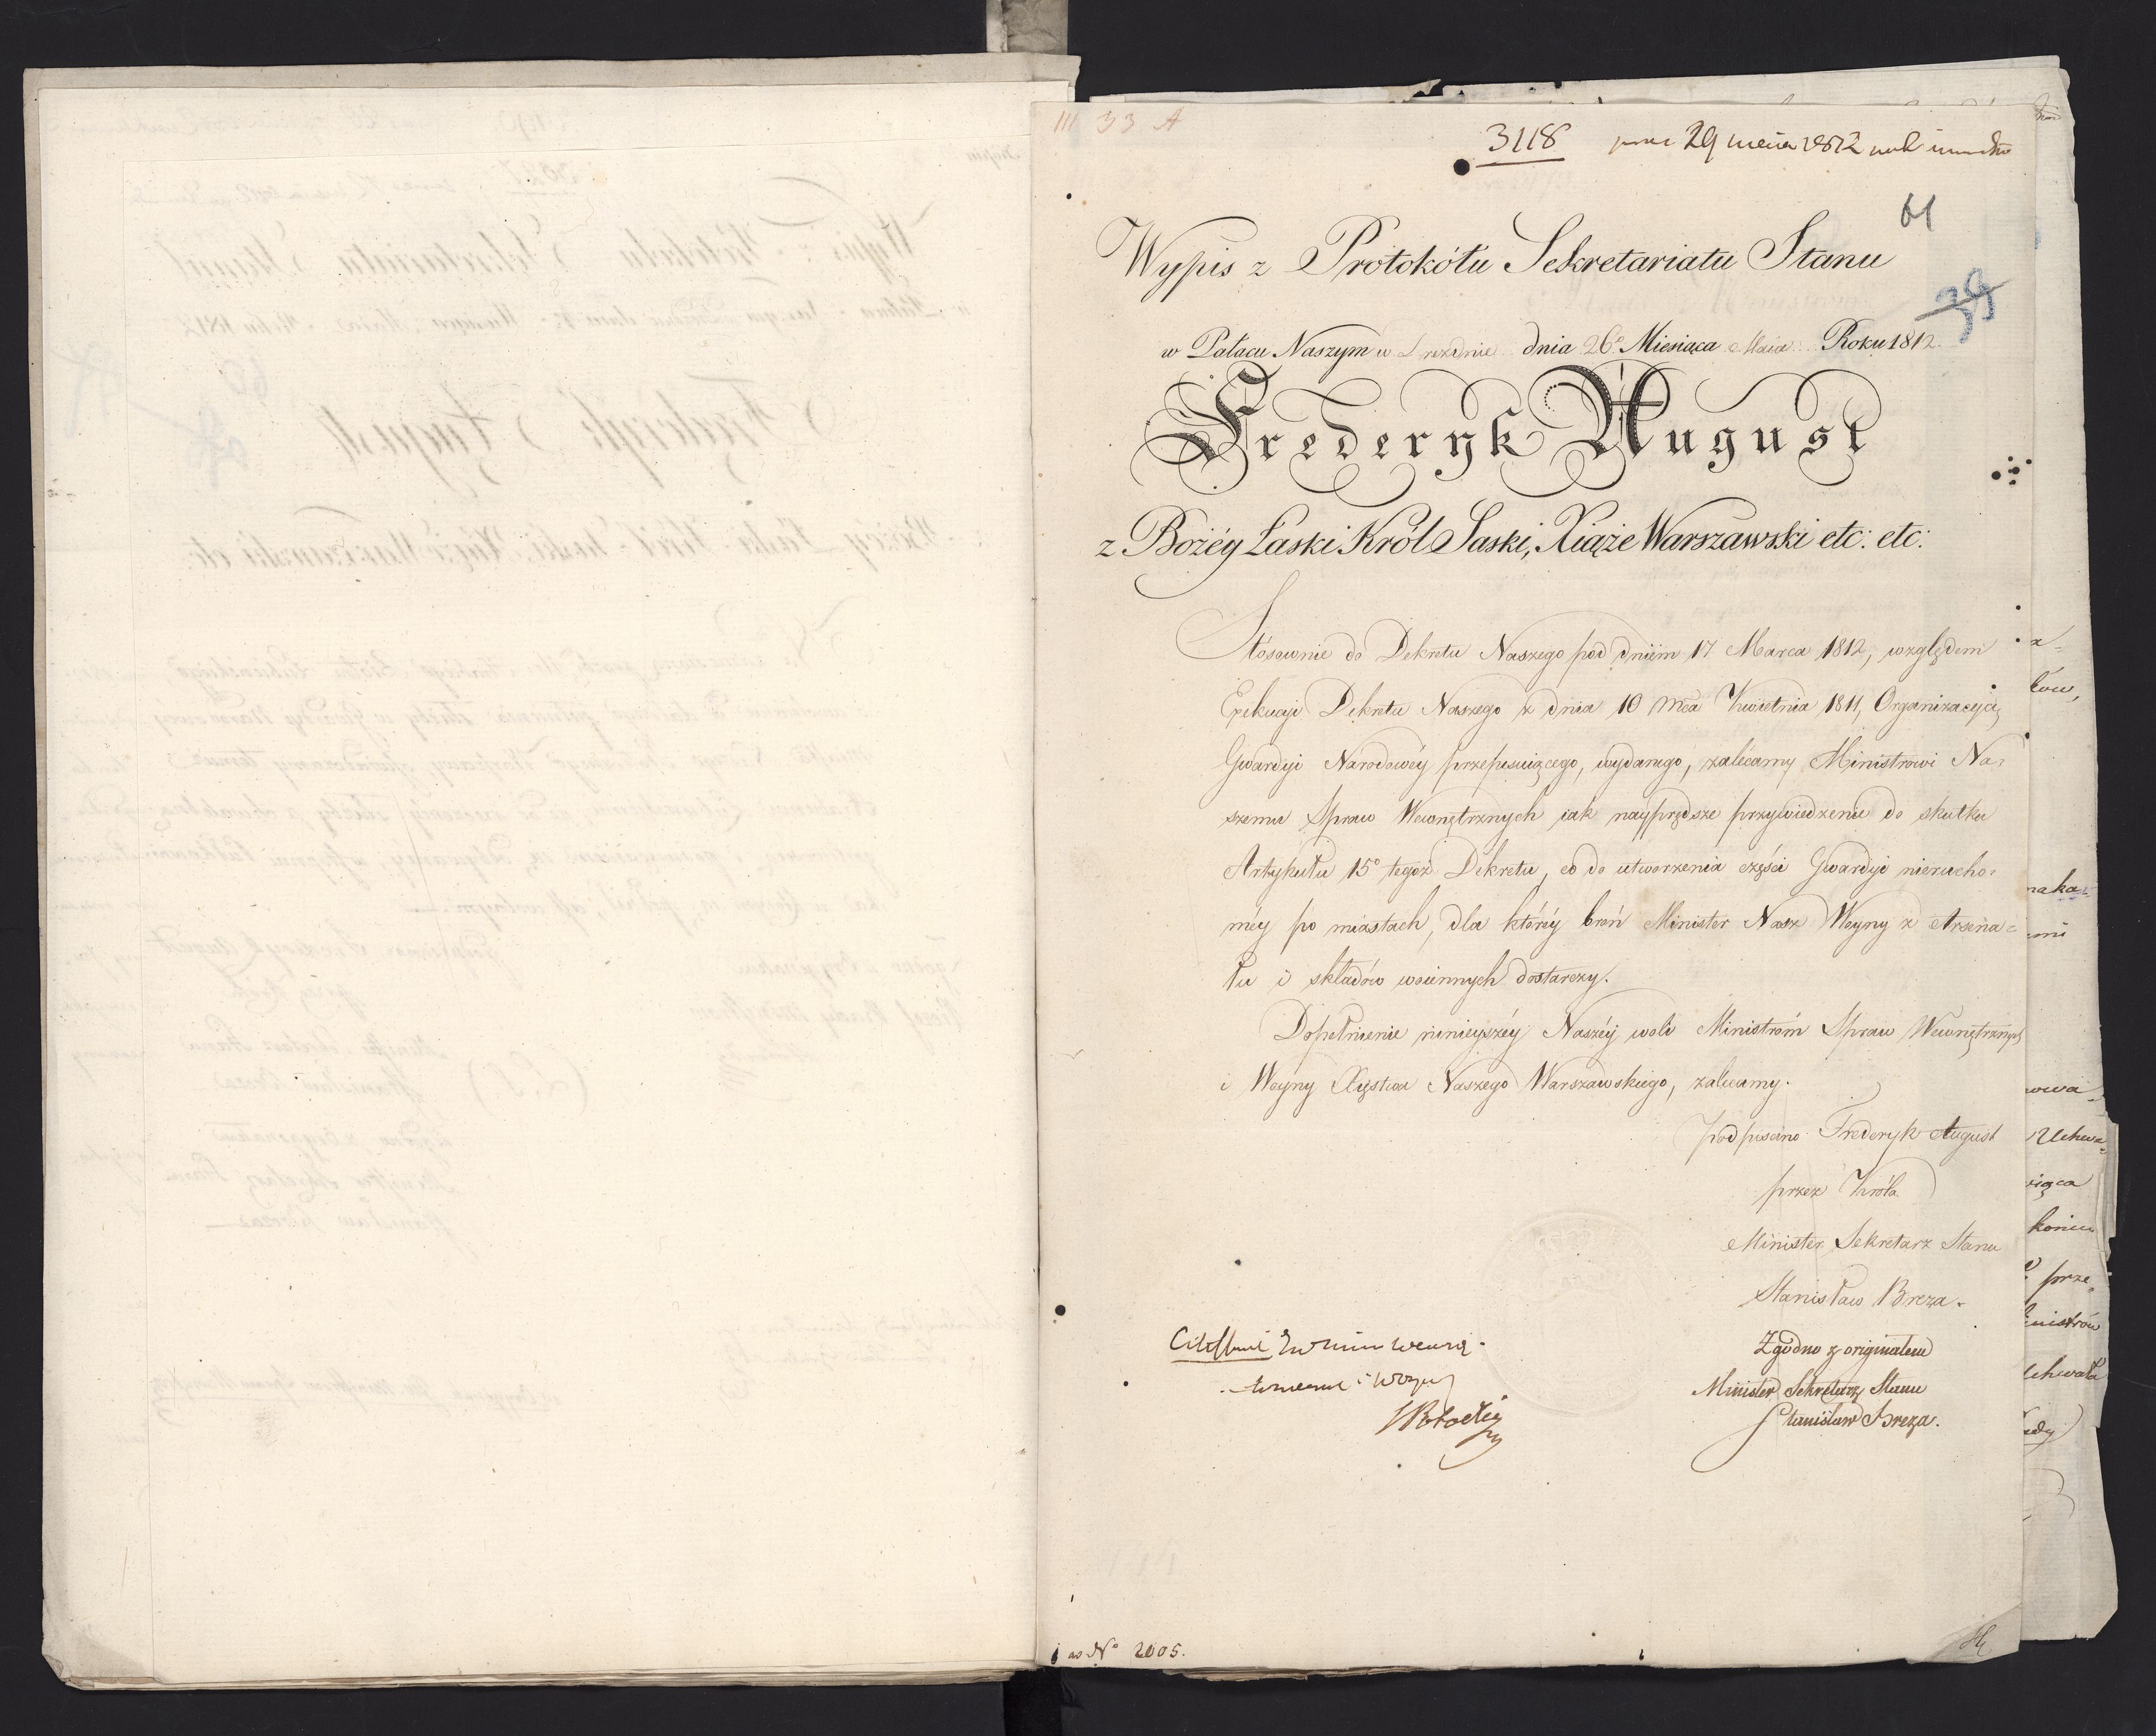 III 33 A
3118 29 1812
61
39
Wypis z Protokółu Sekretariatu Stanu
w Pałacu Naszym w Dreźnie dnia 26º Miesiąca Maia Roku 1812.
Frederyk August
z Bożéy Łaski Król Saski, Xiąże Warszawski etc: etc:
Stósownie do Dekretu Naszego pod dniem 17 Marca 1812, względem
Exekucyi Dekretu Naszego z dnia 10 Mca Kwietnia 1811, Organizacyią
Gwardyi Narodowéy przepisuiącego, wydanego, zalécamy Ministrowi Na=
szemu Spraw Wewnętrznych iak nayprędsze przywiedzenie do skutku
Artykułu 15º tegoż Dekretu, co do utworzenia części Gwardyi nierucho=
méy po miastach, dla któréy broń Minister Nasz Woyny z Arsena=
łu i składów woiennych dostarczy.
Dopełnienie ninieyszéy Naszéy woli Ministróm Spraw Wewnętrznych
i Woyny Xięstwa Naszego Warszawskiego, zalecamy.
podpisano Frederyk August
przez Króla
Minister Sekretarz Stanu
Stanisław Breza.
Zgodno z originałem
Minister Sekretarz Stanu
Stanisław Breza.
i Woyny
Potocki
ad Nº 2005.